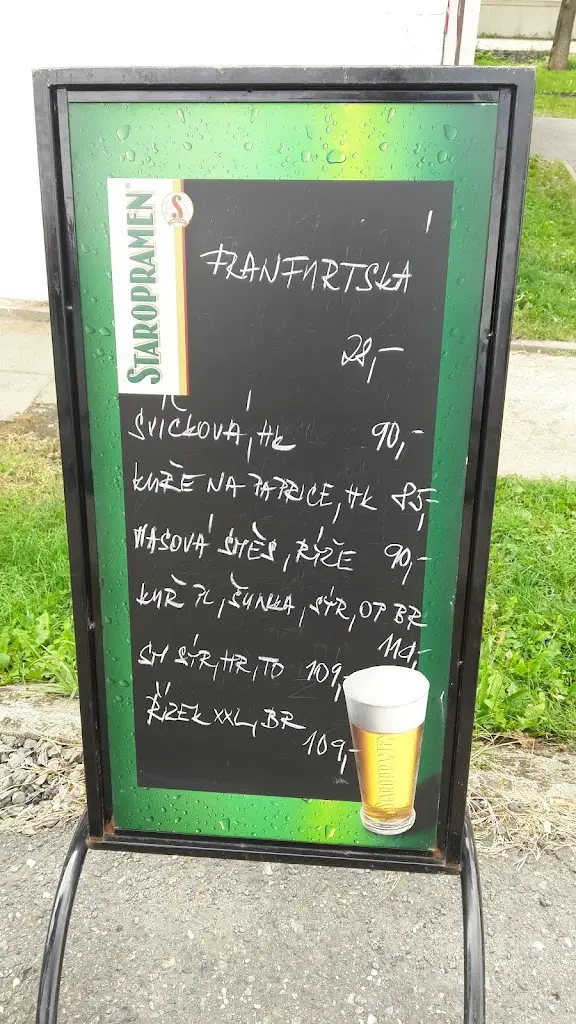 STAROPRAMEN
FRANFURTSKÁ
28,-
SVÍČKOVÁ, HK 90,-
KUŘE NA PAPRICE, HK 85,-
MASOVÁ SMĚS, RÝŽE 90,-
KUŘ PL, ŠUNKA, SÝR, OP BR
114,-
SM SÝR, HR, TO 109,-
ŘÍZEK XXL, BR
109,-
STAROPRAMEN